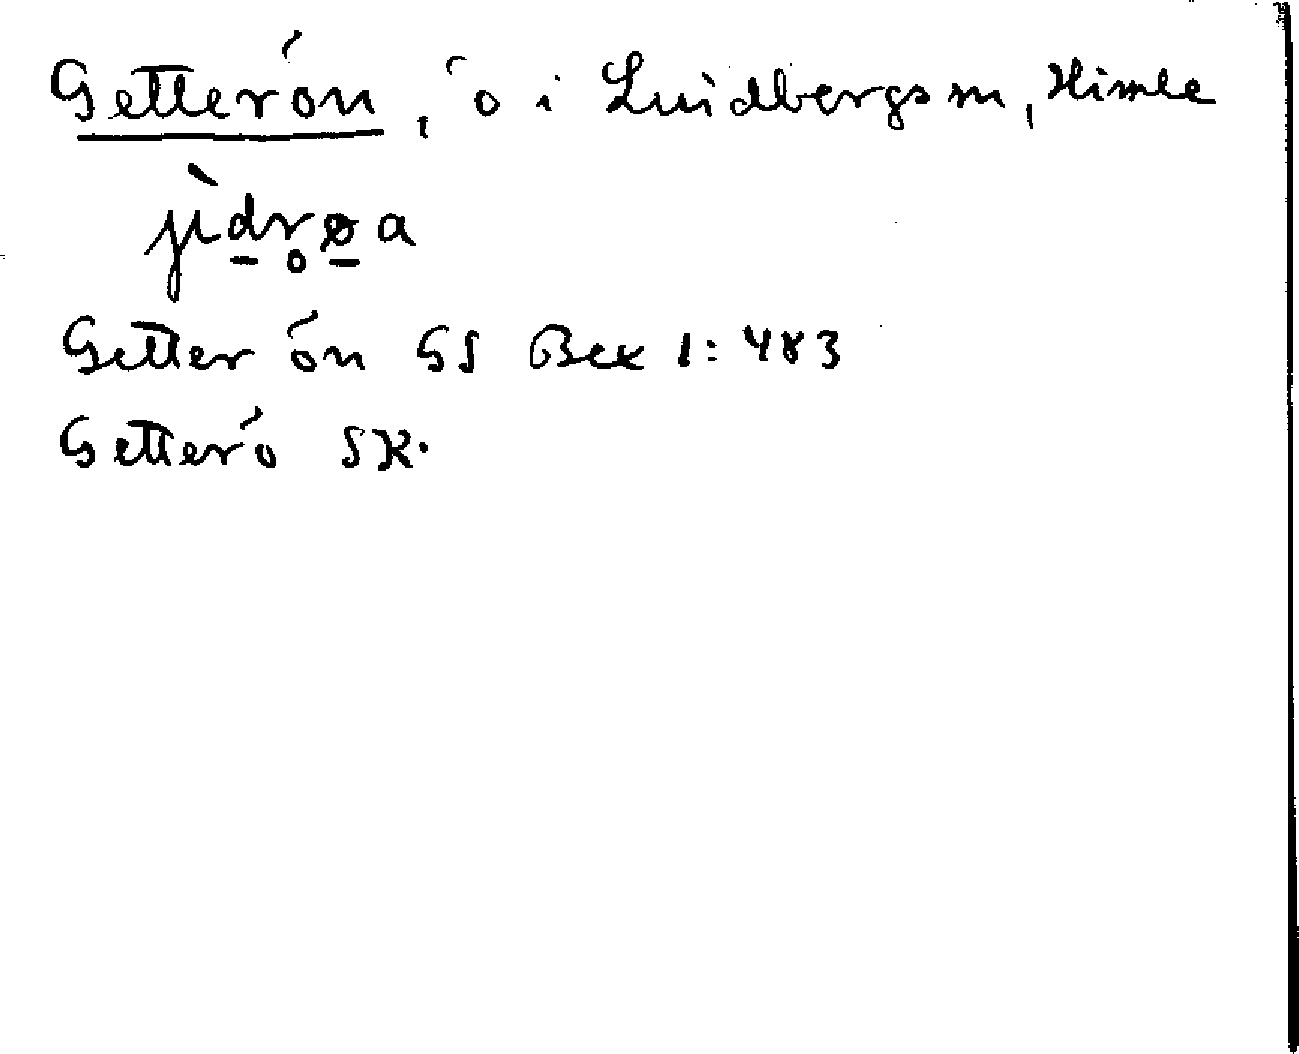 Getterön, ö i Lindbergs sn, Himle
jìdrøa
Getterön GS Bex 1:483
Getterö SK.